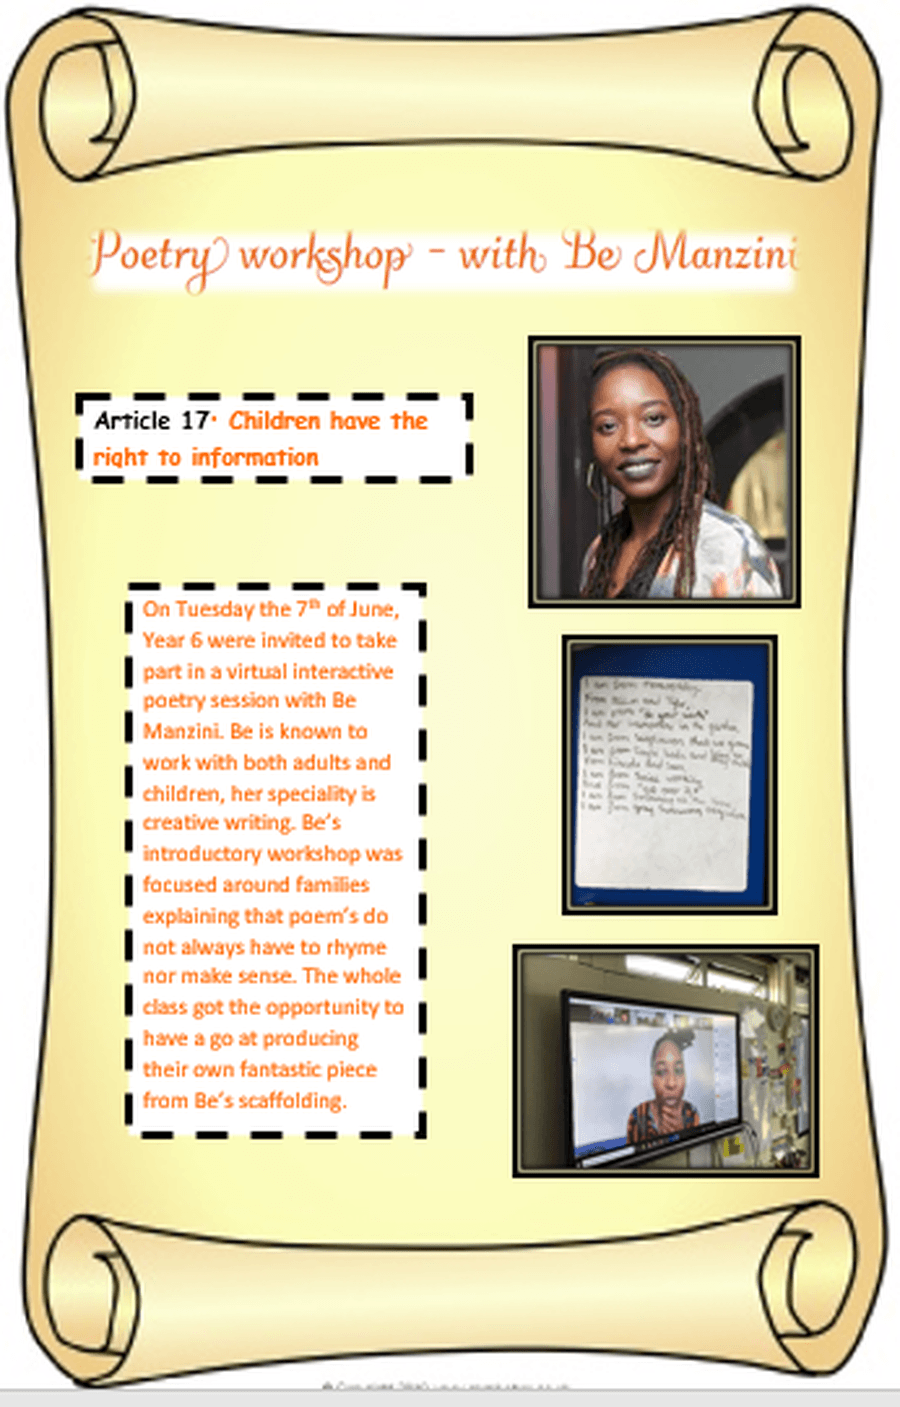 Poetry workshop - with Be Manzini
Article 17· Children have the
right to information
On Tuesday the 7th of June,
Year 6 were invited to take
part in a virtual interactive
poetry session with Be
Manzini. Be is known to
work with both adults and
children, her speciality is
creative writing. Be's
introductory workshop was
focused around families
explaining that poem's do
not always have to rhyme
nor make sense. The whole
class got the opportunity to
have a go at producing
their own fantastic piece
from Be's scaffolding.
I am from
I am from
I am from
I am from
I am from